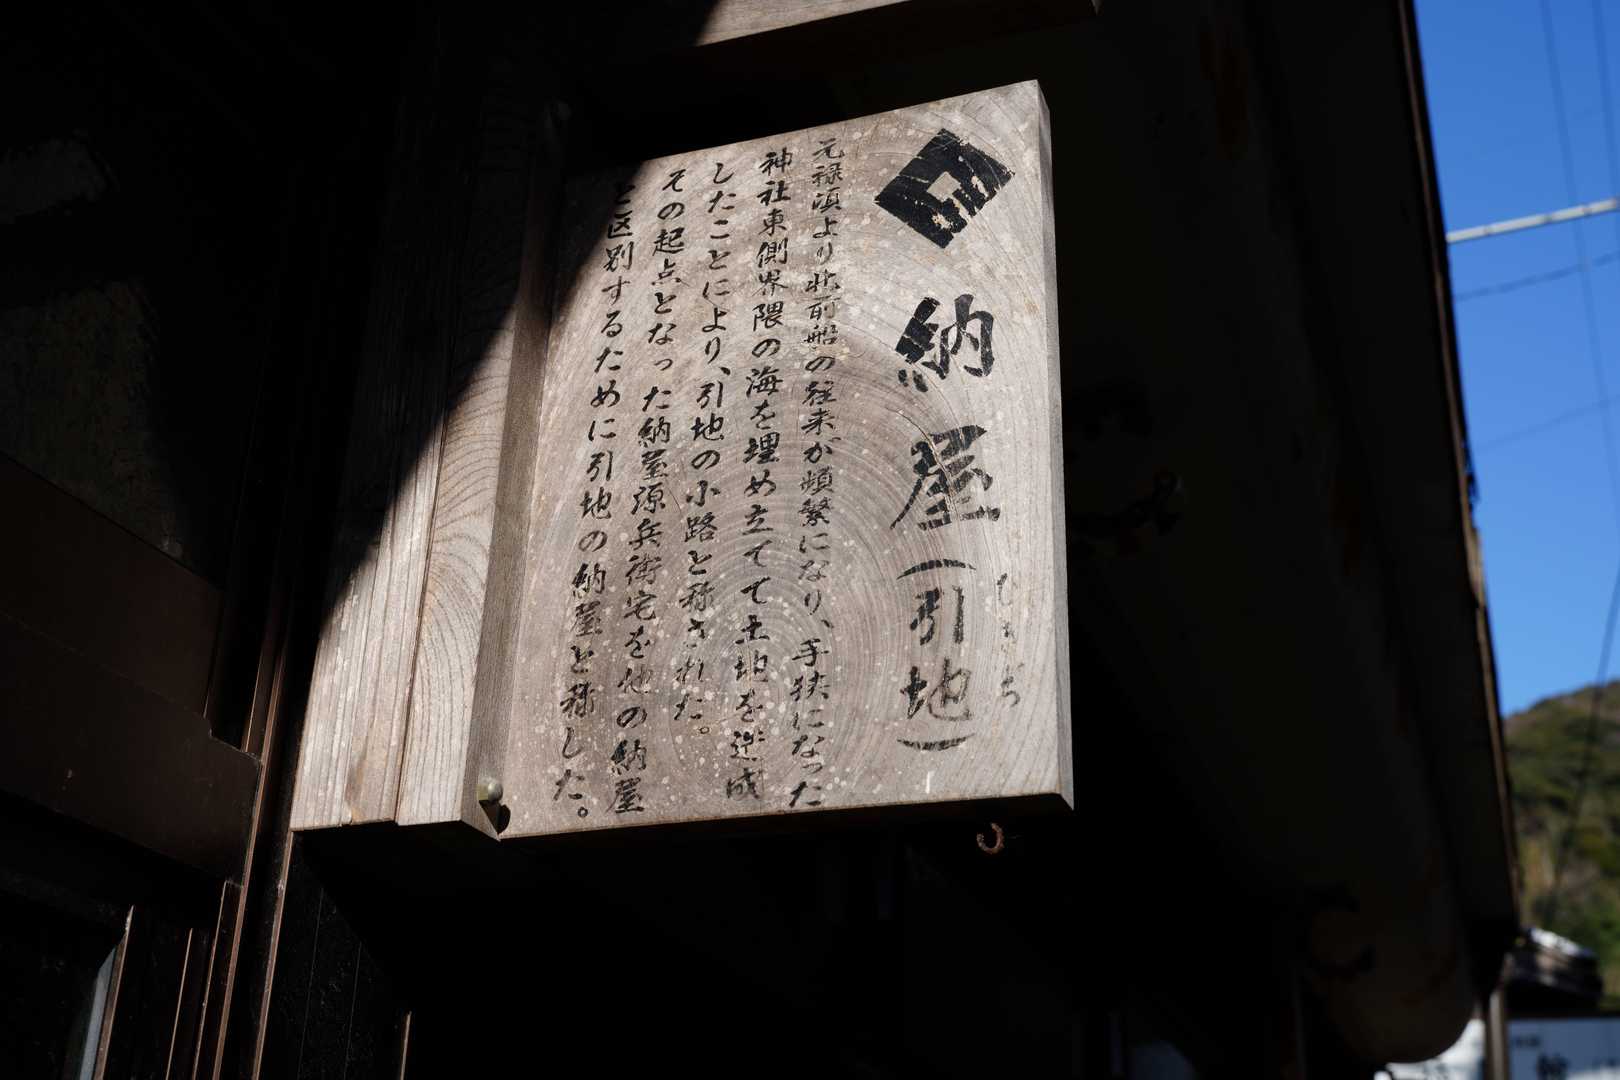 納屋(引地)
ひきぢ
元禄頃より北前船の往来が頻繁になり、手狭になった
神社東側界隈の海を埋め立てて土地を造成
したことにより、引地の小路と称された。
その起点となった納屋源兵衛宅を他の納屋
と区別するために引地の納屋と称した。